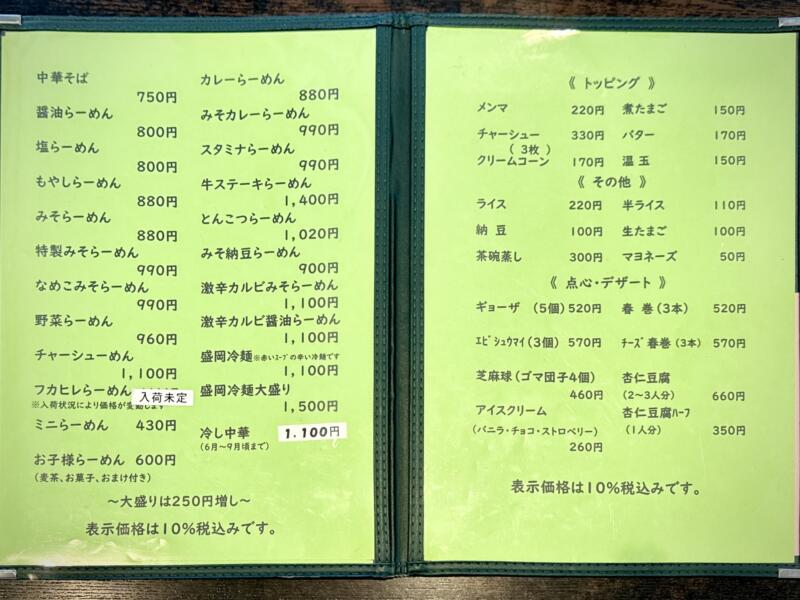 中華そば
750円
醤油らーめん
800円
塩らーめん
800円
もやしらーめん
880円
みそらーめん
880円
特製みそらーめん
990円
なめこみそらーめん
990円
野菜らーめん
960円
チャーシューめん
1,100円
フカヒレらーめん 入荷未定
※入荷状況により価格が変動します
ミニらーめん 430円
お子様らーめん 600円
(麦茶、お菓子、おまけ付き)
カレーらーめん
880円
みそカレーらーめん
990円
スタミナらーめん
990円
牛ステーキらーめん
1,400円
とんこつらーめん
1,020円
みそ納豆らーめん
900円
激辛カルビみそらーめん
1,100円
激辛カルビ醤油らーめん
1,100円
盛岡冷麺※赤いスープの辛い冷麺です
1,100円
盛岡冷麺大盛り
1,500円
冷し中華 1.100円
(6月~9月頃まで)
~大盛りは250円増し~
表示価格は10%税込みです。
《 トッピング 》
メンマ 220円 煮たまご 150円
チャーシュー 330円 バター 170円
( 3枚 )
クリームコーン 170円 温 玉 150円
《 その他 》
ライス 220円 半ライス 110円
納 豆 100円 生たまご 100円
茶碗蒸し 300円 マヨネーズ 50円
《 点心・デザート 》
ギョーザ (5個) 520円 春 巻 (3本) 520円
エビシュウマイ (3個) 570円 チーズ春巻 (3本) 570円
芝麻球(ゴマ団子4個) 杏仁豆腐
460円 (2~3人分) 660円
アイスクリーム 杏仁豆腐ハーフ
(バニラ・チョコ・ストロベリー) (1人分) 350円
260円
表示価格は10%税込みです。